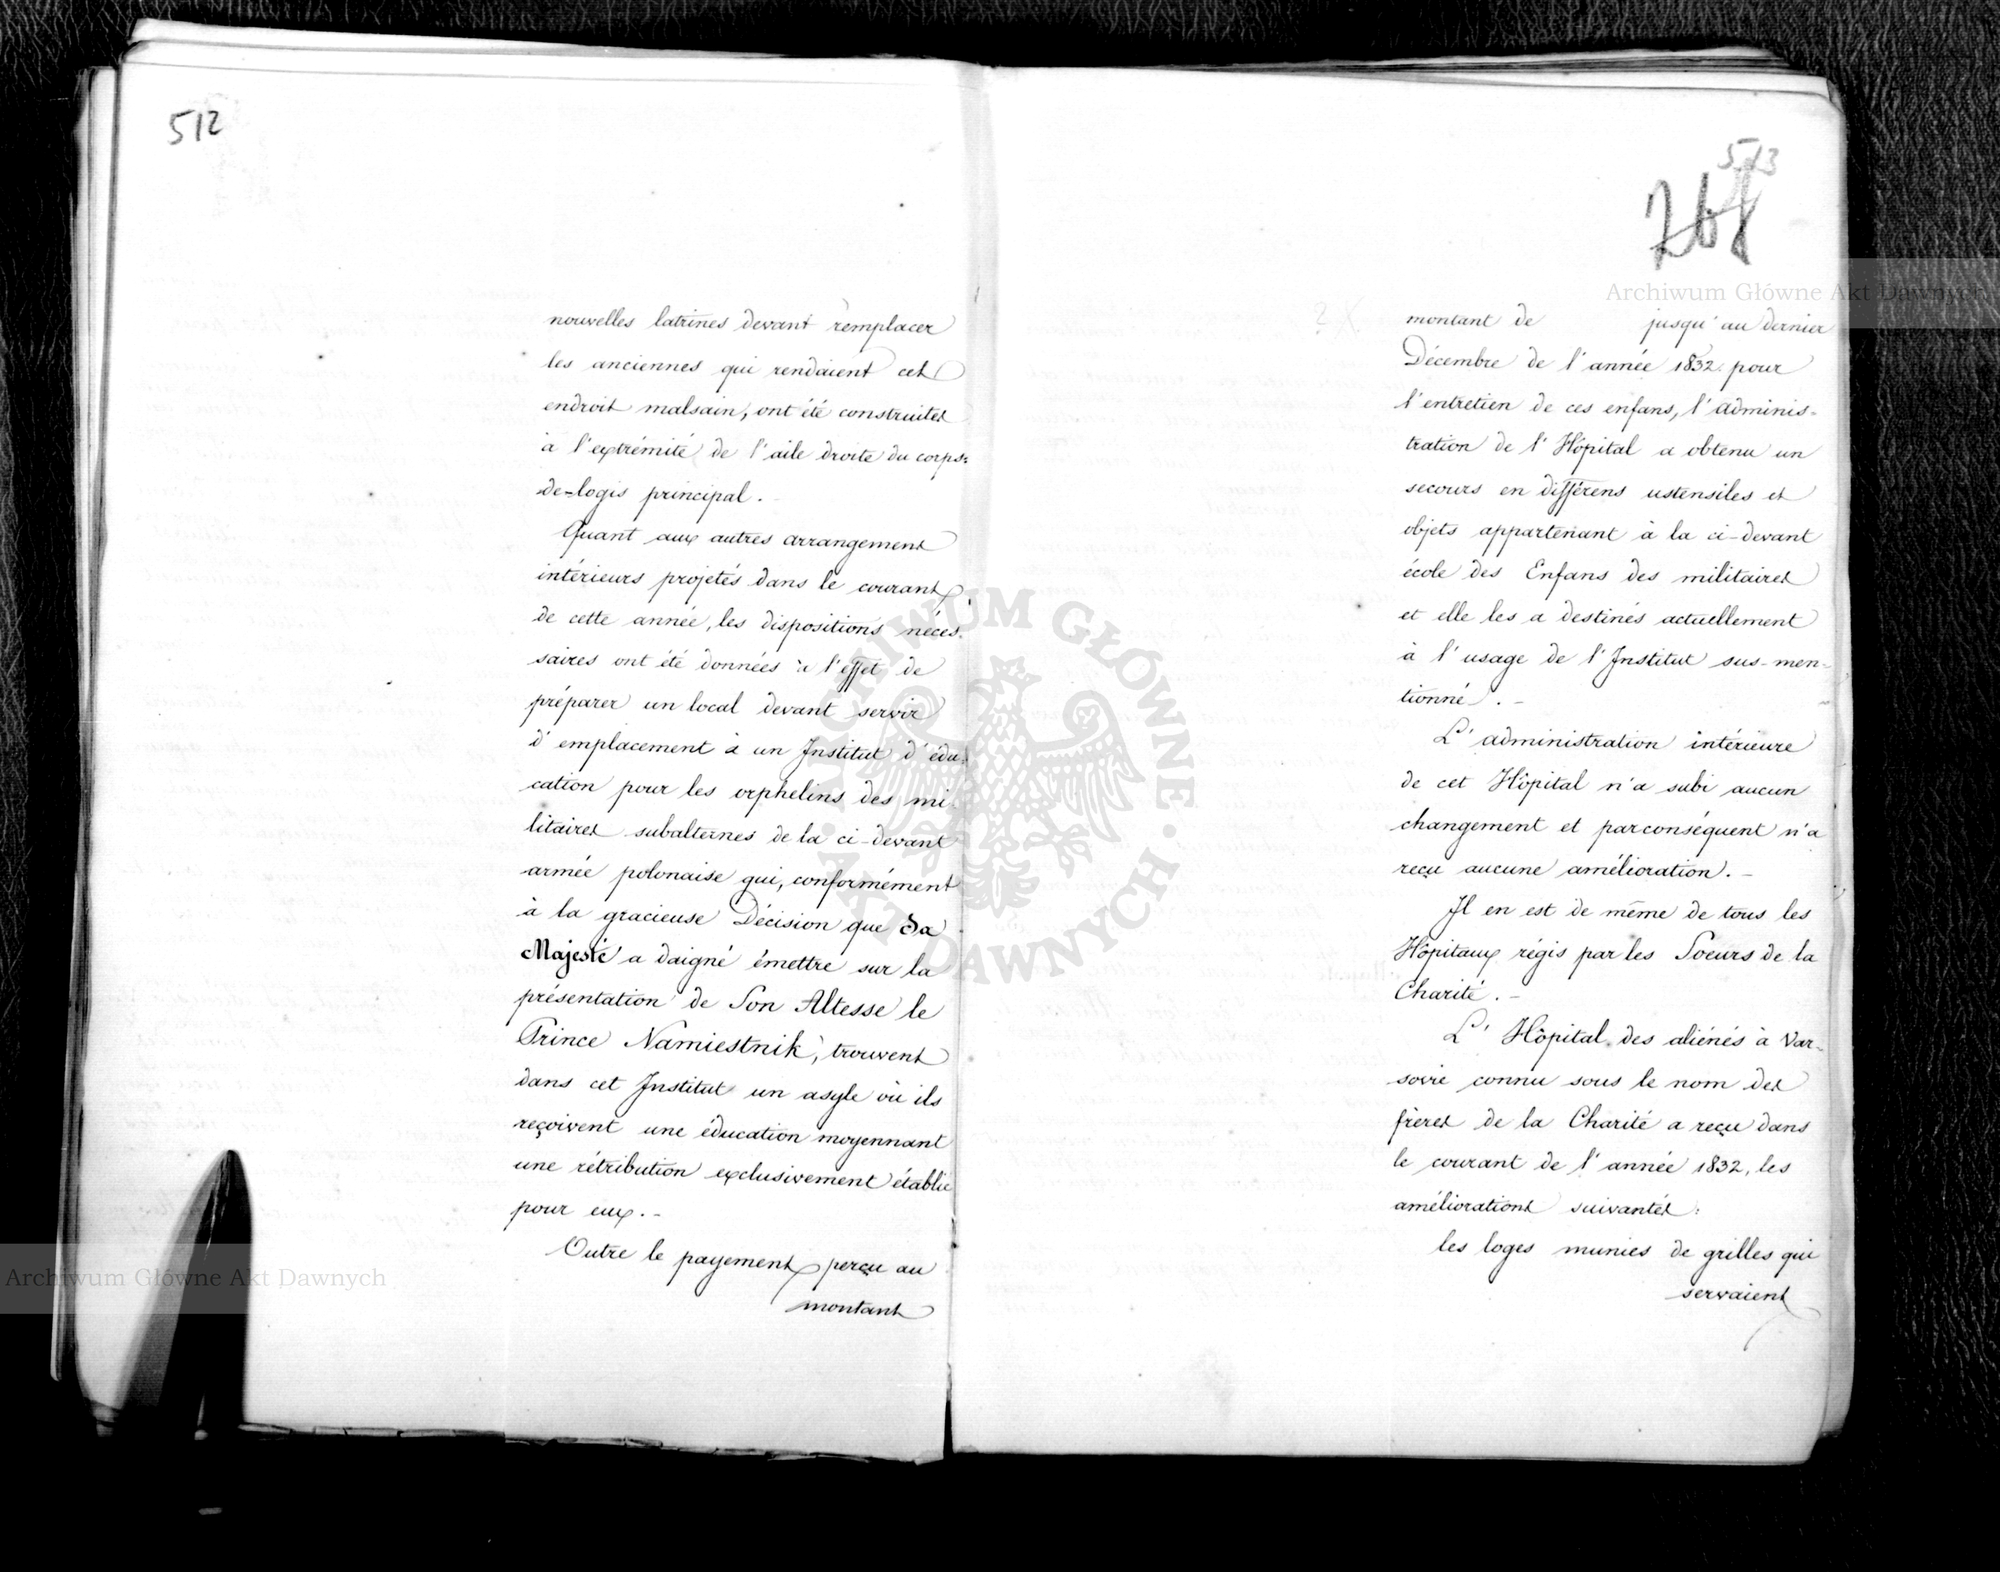 512
nouvelles latrines devant remplacer
les anciennes qui rendaient cet
endroit malsain, ont été construites
à l'extrémité de l'aile droite du corps-
de-logis principal.
Quant aux autres arrangemens
intérieurs projetés dans le courant
de cette année, les dispositions néces-
saires ont été données à l'effet de
préparer un local devant servir
d'emplacement à un Institut d'édu-
cation pour les orphelins des mi-
litaires subalternes de la ci-devant
armée polonaise qui, conformément
à la gracieuse Décision que Sa
Majesté a daigné émettre sur la
présentation de Son Altesse le
Prince Namiestnik, trouvent
dans cet Institut un asyle où ils
reçoivent une éducation moyennant
une rétribution exclusivement établie
pour eux.-
Outre le payement perçu au
montant
513
montant de jusqu'au dernier
Décembre de l'année 1832. pour
l'entretien de ces enfans, l'adminis-
tration de l'Hôpital a obtenu un
secours en différens ustensiles et
objets appartenant à la ci-devant
école des Enfans des militaires
et elle les a destinés actuellement
à l'usage de l'Institut sus-men-
tionné.-
L'administration intérieure
de cet Hôpital n'a subi aucun
changement et parconséquent n'a
reçu aucune amélioration.-
Il en est de même de tous les
Hôpitaux régis par les Soeurs de la
Charité.-
L'Hôpital des aliénés à Var-
sovie connu sous le nom des
frères de la Charité a reçu dans
le courant de l'année 1832, les
améliorations suivantes:
les loges munies de grilles qui
servaient
Archiwum Główne Akt Dawnych
Archiwum Główne Akt Dawnych
ARCHIWUM GŁÓWNE · AKT DAWNYCH ·